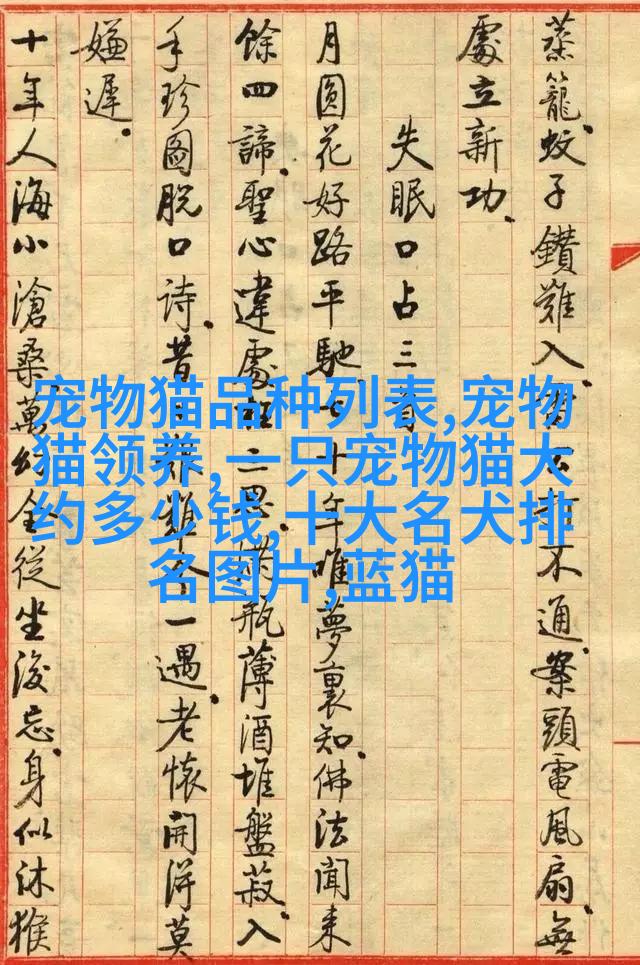 蒸籠。蚊子鑽難入、不通。案頭電風扇、無
處立新功。
失眠口占三首
月圓花好路平馳、十年唯夢裏知。佛法聞來
餘四諦、聖心違處二思。瓶薄酒堆盤菽、入
手珍圖脫口詩。昔難一遇、老懷開得莫
嫌遲。
十年人海小滄桑、萬幻全從坐後忘。身似沐猴
宠物猫品种列表,宠物
猫领养,一只宠物猫大
约多少钱,十大名犬排
名图片,蓝猫